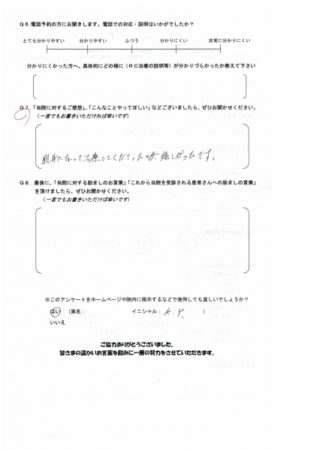 Q6.電話予約の方にお聞きします。電話での対応・説明はいかがでしたか?
とても分かりやすい 分かりやすい ふつう 分かりにくい 非常に分かりにくい
分かりにくかった方へ、具体的にどの様に(RC治療の説明等)が分かりづらかったか教えて下さい
Q7.「当院に対するご感想」、「こんなことやってほしい」などございましたら、ぜひお聞かせください。
(一言でもお書きいただければ幸いです)
親身になって治療してくださったのが嬉しかったです。
Q8.最後に、「当院に対する励ましのお言葉」「これから当院を受診される患者さんへの励ましの言葉」
を頂けましたら、ぜひお聞かせください。
(一言でもお書きいただければ幸いです)
※このアンケートをホームページや院内に掲示するなどで使用しても宜しいでしょうか?
はい (実名: イニシャル: K.Y. )
いいえ
ご協力ありがとうございました。
皆さまの温かいお言葉を励みに一層の努力をさせていただきます。